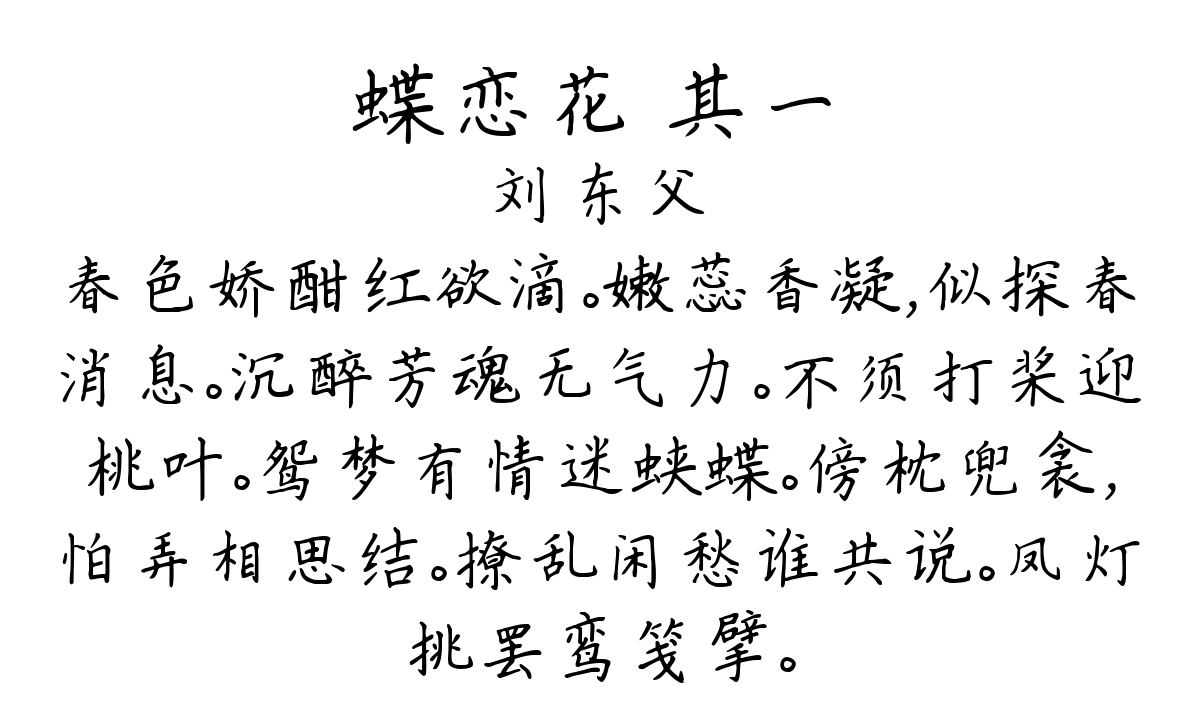 蝶恋花 其一
刘东父
春色娇酣红欲滴。嫩蕊香凝,似探春
消息。沉醉芳魂无气力。不须打桨迎
桃叶。鸳梦有情迷蛱蝶。傍枕兜衾,
怕弄相思结。撩乱闲愁谁共说。凤灯
挑罢鸾笺擘。